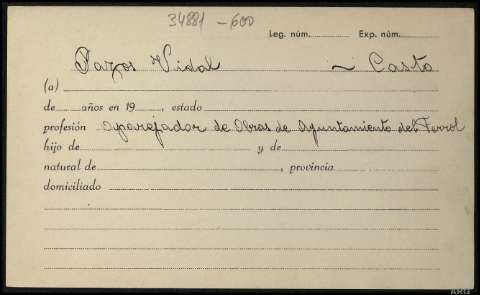 34881 - 600
Leg. núm. Exp. núm.
Pazos Vidal ~ Casto
(a)
de años en 19, estado
profesión aparejador de Obras de Ayuntamiento del Ferrol
hijo de y de
natural de, provincia
domiciliado